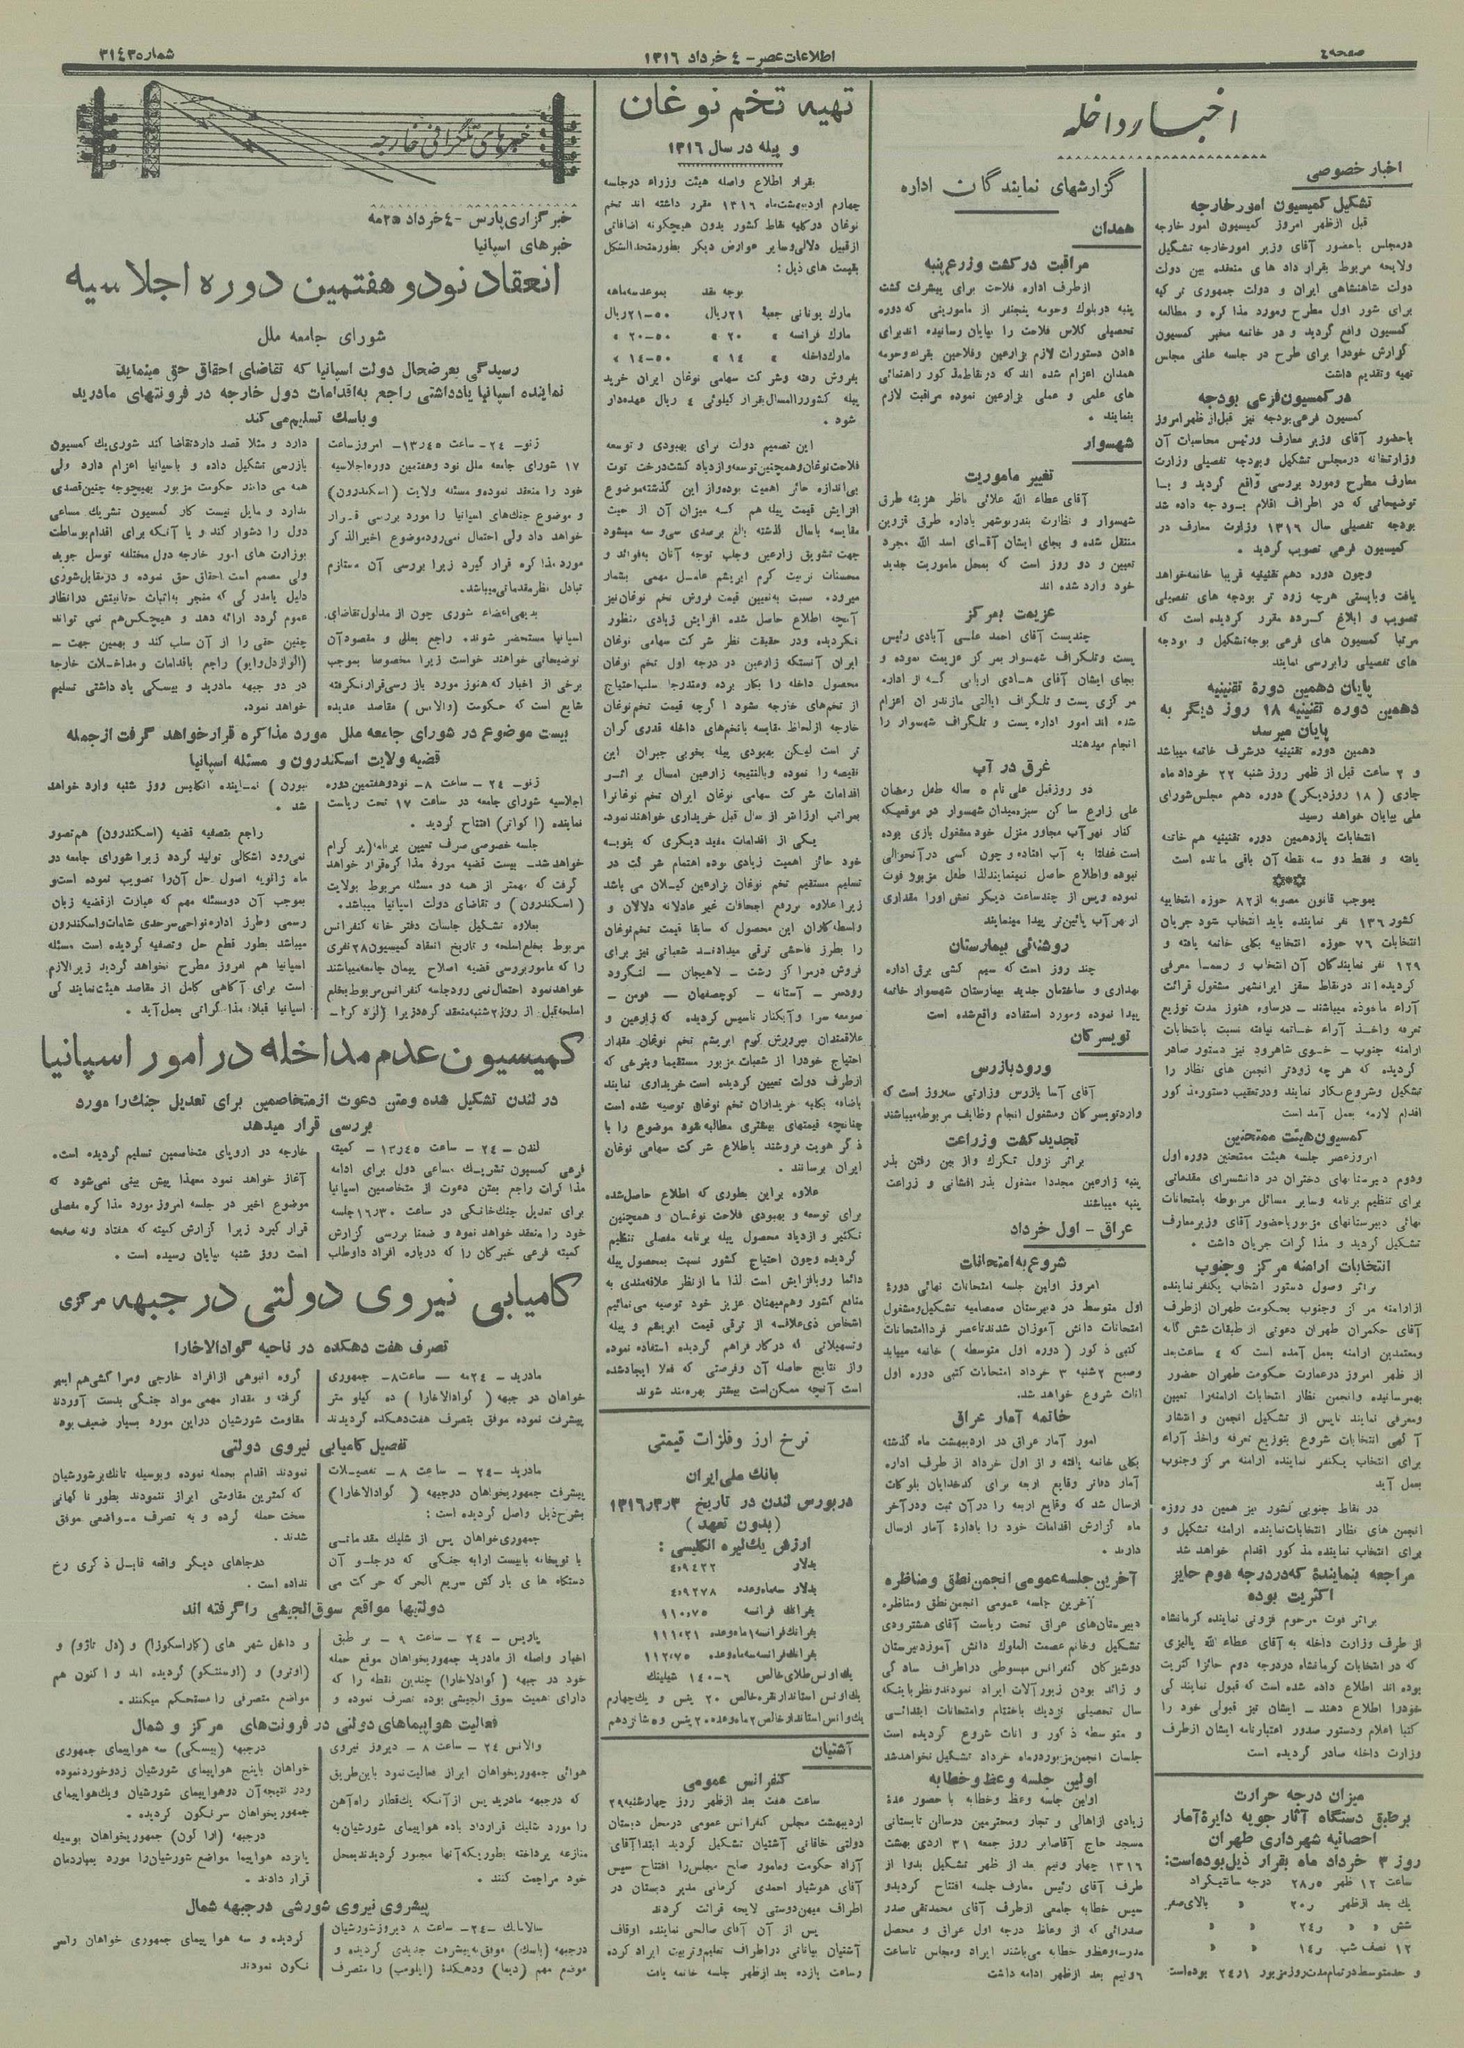 صفحه٤
اطلاعات عصر – ٤ خرداد ١٣١٦
شماره ٣١٤٣٥
اخبار داخله
اخبار خصوصی
تشکیل کمیسیون امور خارجه
قبل ازظهر امروز کمیسیون امور خارجه
درمجلس باحضور آقای وزیر امورخارجه تشکیل
ولایحه مربوط بقرار داد های منعقده بین دولت
دولت شاهنشاهی ایران و دولت جمهوری ترکیه
برای شور اول مطرح ومورد مذاکره و مطالعه
کمسیون واقع گردید و در خاتمه مخبر کمسیون
گزارش خودرا برای طرح در جلسه علنی مجلس
تهیه وتقدیم داشت
درکمسیون فرعی بودجه
کمسیون فرعی بودجه نیز قبل از ظهر امروز
باحضور آقای وزیر معارف ورئیس محاسبات آن
وزارتخانه درمجلس تشکیل وبودجه تفصیلی وزارت
معارف مطرح ومورد بررسی واقع گردید و بـا
توضیحاتی که در اطراف اقلام بودجه داده شد
بودجه تفصیلی سال ١٣١٦ وزارت معارف در
کمیسیون فرعی تصویب گردید .
وچون دوره دهم تقنینیه قریبا خاتمه خواهد
یافت وبایستی هرچه زود تر بودجه های تفصیلی
تصویب و ابلاغ گردد مقرر گردیده است که
مرتبا کمسیون های فرعی بودجه تشکیل و بودجه
های تفصیلی رابررسی نمایند
پایان دهمین دورهٔ تقنینیه
دهمین دوره تقنینیه ١٨ روز دیگر به
پایان میرسد
دهمین دوره تقنینیه درشرف خاتمه میباشد
و ٢ ساعت قبل از ظهر روز شنبه ٢٢ خرداد ماه
جاری ( ١٨ روزدیگر) دوره دهم مجلس شورای
ملی بپایان خواهد رسید
انتخابات یازدهمین دوره تقنینیه هم خاتمه
یافته و فقط دو سه نقطه آن باقی مانده است
بموجب قانون مصوبه از ٨٢ حوزه انتخابیه
کشور ١٣٦ نفر نماینده باید انتخاب شود جریان
انتخابات ٧٦ حوزه انتخابیه بکلی خاتمه یافته و
١٢٩ نفر نمایندگان آن انتخاب و رسما معرفی
گردیده اند درنقاط سقز ایرانشهر مشغول قرائت
آراء ماخوذه میباشند – درساوه هنوز مدت توزیع
تعرفه واخذ آراء خاتمه نیافته نسبت بانتخابات
ارامنه جنوب – خوی شاهرود نیز دستور صادر
گردیده که هر چه زودتر انجمن های نظار را
تشکیل وشروع بکار نمایند ودرتعقیب دستورمذکور
اقدام لازمه بعمل آمده است
کمسیون هیئت ممتحنین
امروز عصر جلسه هیئت ممتحنین دوره اول
ودوم دبیرستانهای دختران در دانشسرای مقدماتی
برای تنظیم برنامه وسایر مسائل مربوطه بامتحانات
نهائی دبیرستانهای مزبور باحضور آقای وزیر معارف
تشکیل گردید و مذاکرات جریان داشت .
انتخابات ارامنه مرکز وجنوب
براثر وصول دستور انتخاب یکنفر نماینده
ازارامنه مرکز وجنوب بحکومت طهران ازطرف
آقای حکمران طهران دعوتی از طبقات شش گانه
ومعتمدین ارامنه بعمل آمده است که ٤ ساعت بعد
از ظهر امروز درعمارت حکومت طهران حضور
بهمرسانیده وانجمن نظار انتخابات ارامنه را تعیین
ومعرفی نمایند تاپس از تشکیل انجمن و انتشار
آگهی انتخابات شروع بتوزیع تعرفه واخذ آراء
برای انتخاب یکنفر نماینده ارامنه مرکز وجنوب
بعمل آید
در نقاط جنوبی کشور نیز همین دو روزه
انجمن های نظار انتخابات نماینده ارامنه تشکیل و
برای انتخاب نماینده مذکور اقدام خواهد شد
مراجعه بنماینده که دردرجه دوم حایز
اکثریت بوده
براثر فوت مرحوم فزونی نماینده کرمانشاه
از طرف وزارت داخله به آقای عطاء الله پالیزی
که در انتخابات کرمانشاه دردرجه دوم حائز اکثریت
بوده اند اطلاع داده شده است که قبول نمایندگی
خودرا اطلاع دهند – ایشان نیز قبولی خود را
کتبا اعلام ودستور صدور اعتبارنامه ایشان ازطرف
وزارت داخله صادر گردیده است
میزان درجه حرارت
برطبق دستگاه آثار جویه دایرهٔ آمار
احصائیه شهرداری طهران
روز ٣ خرداد ماه بقرار ذیل بوده است:
ساعت ١٢ ظهر ٢٨٫٥ درجه سانتیگراد
یک بعد ازظهر ٢٠٫ « بالای صفر
شش « « ٢٤٫ « «
١٢ نصف شب ١٤٫ « «
و حدمتوسط درتمام مدت روز مزبور ٢٤٫١ بوده است
گزارشهای نمایندگان اداره
همدان
مراقبت در کشت وزرع پنبه
ازطرف اداره فلاحت برای پیشرفت کشت
پنبه دربلوک وحومه پنجنفر از مامورینی که دوره
تحصیلی کلاس فلاحت را بپایان رسانیده اند برای
دادن دستورات لازم بزارعین وفلاحین بقراء وحومه
همدان اعزام شده اند که درنقاط مذکور راهنمائی
های علمی و عملی بزارعین نموده مراقبت لازم
بنمایند .
شهسوار
تغییر ماموریت
آقای عطاء الله علائی ناظر هزینه طرق
شهسوار و نظارت بندر نوشهر باداره طرق قزوین
منتقل شده و بجای ایشان آقای اسد الله مجرد
تعیین و دو روز است که بمحل ماموریت جدید
خود وارد شده اند
عزیمت بمرکز
چندیست آقای احمد علی آبادی رئیس
پست وتلگراف شهسوار بمرکز عزیمت نموده و
بجای ایشان آقای هادی اربابی که از اداره
مرکزی پست و تلگراف ایالتی مازندران اعزام
شده اند امور اداره پست و تلگراف شهسوار را
انجام میدهند
غرق در آب
دو روزقبل علی نام ٥ ساله طفل رمضان
علی زارع ساکن سبزه میدان شهسوار در موقعیکه
کنار نهر آب مجاور منزل خود مشغول بازی بوده
است غفلتا به آب افتاده و چون کسی درآنحوالی
نبوده واطلاع حاصل نمینمایند لذا طفل مزبور فوت
نموده وپس از چندساعت دیگر نعش اورا مقداری
از نهر آب پائین تر پیدا مینمایند
روشنائی بیمارستان
چند روز است که سیم کشی برق اداره
بهداری و ساختمان جدید بیمارستان شهسوار خاتمه
پیدا نموده ومورد استفاده واقع شده است
تویسرکان
ورود بازرس
آقای آسا بازرس وزارتی سه روز است که
وارد تویسرکان ومشغول انجام وظایف مربوطه میباشند
تجدید کشت وزراعت
براثر نزول تگرک واز بین رفتن بذر
پنبه زارعین مجددا مشغول بذر افشانی و زراعت
پنبه میباشند
عراق – اول خرداد
شروع به امتحانات
امروز اولین جلسه امتحانات نهائی دورهٔ
اول متوسط در دبیرستان صمصامیه تشکیل ومشغول
امتحانات دانش آموزان شدند تاعصر فردا امتحانات
کتبی ذکور ( دوره اول متوسطه ) خاتمه مییابد
وصبح ٢شنبه ٣ خرداد امتحانات کتبی دوره اول
اناث شروع خواهد شد.
خاتمه آمار عراق
امور آمار عراق در اردیبهشت ماه گذشته
بکلی خاتمه یافته و از اول خرداد از طرف اداره
آمار دفاتر وقایع اربعه برای کدخدایان بلوکات
ارسال شد که وقایع اربعه را درآن ثبت ودرآخر
ماه گزارش اقدامات خود را بادارهٔ آمار ارسال
دارند .
آخرین جلسه عمومی انجمن نطق ومناظره
آخرین جلسه عمومی انجمن نطق ومناظره
دبیرستان‌های عراق تحت ریاست آقای هشترودی
تشکیل وخانم عصمت الملوک دانش آموز دبیرستان
دوشیزگان کنفرانس مبسوطی دراطراف سادگی
و زائد بودن زیورآلات ایراد نمودند ونظر باینکه
سال تحصیلی نزدیک باختتام وامتحانات ابتدائی
و متوسطه ذکور و اناث شروع گردیده است
جلسات انجمن مزبور درماه خرداد تشکیل نخواهد شد
اولین جلسه وعظ وخطابه
اولین جلسه وعظ وخطابه با حضور عدهٔ
زیادی ازاهالی و تجار ومحترمین درسالن تابستانی
مسجد حاج آقاصابر روز جمعه ٣١ اردی بهشت
١٣١٦ چهار ونیم بعد از ظهر تشکیل بدوا از
طرف آقای رئیس معارف جلسه افتتاح گردید و
سپس خطابه جامعی ازطرف آقای محمدتقی صدر
صدرائی که از وعاظ درجه اول عراق و محصل
مدرسه وعظ و خطابه می‌باشند ایراد ومجلس تاساعت
٦ ونیم بعد ازظهر ادامه داشت
تهیه تخم نوغان
و پیله در سال ١٣١٦
بقرار اطلاع واصله هیئت وزراء درجلسه
چهارم اردیبهشت ماه ١٣١٦ مقرر داشته اند تخم
نوغان درکلیه نقاط کشور بدون هیچگونه اضافاتی
ازقبیل دلالی وسایر عوارض دیگر بطور متحدالشکل
بقیمت های ذیل :
بوجه نقد بموعد سه ماهه
مارک یونانی جعبهٔ ٢١ریال ٥٠–٢١ریال
مارک فرانسه » ٢٠ » ٥٠–٢٠ »
مارک داخله » ١٤ » ٥٠–١٤ »
بفروش رفته وشرکت سهامی نوغان ایران خرید
پیله کشور را امسال بقرار کیلوئی ٤ ریال عهده دار
شود .
این تصمیم دولت برای بهبودی و توسعه
فلاحت نوغان وهمچنین توسعه وازدیاد کشت درخت توت
بی اندازه حائز اهمیت بوده و از این گذشته موضوع
افزایش قیمت پیله هم که میزان آن از حیث
مقایسه باسال گذشته بالغ برصدی سی و سه میشود
جهت تشویق زارعین وجلب توجه آنان به فوائد و
محسنات تربیت کرم ابریشم عامل مهمی بشمار
میرود. نسبت به تعیین قیمت فروش تخم نوغان نیز
آنچه اطلاع حاصل شده افزایش زیادی منظور
نگردیده ودر حقیقت نظر شرکت سهامی نوغان
ایران آنستکه زارعین در درجه اول تخم نوغان
محصول داخله را بکار برده ومتدرجا سلب احتیاج
از تخم‌های خارجه بشود ا گرچه قیمت تخم نوغان
خارجه ازلحاظ مقایسه باتخم‌های داخله قدری گران
تر است لیکن بهبودی پیله بخوبی جبران این
نقیصه را نموده وبالنتیجه زارعین امسال بر اثر
اقدامات شرکت سهامی نوغان ایران تخم نوغانرا
بمراتب ارزانتر از سال قبل خریداری خواهند نمود.
یکی از اقدامات مفید دیگری که بنوبه
خود حائز اهمیت زیادی بوده اهتمام شرکت در
تسلیم مستقیم تخم نوغان بزارعین گیلان می باشد
زیرا علاوه بررفع اجحافات غیر عادلانه دلالان و
واسطه‌کاران این محصول که سابقا قیمت تخم نوغان
را بطرز فاحشی ترقی میدادند شعباتی نیز برای
فروش درمراکز رشت – لاهیجان – لنگرود
رودسر – آستانه – کوچصفهان – فومن –
صومعه سرا وآبکنار تاسیس گردیده که زارعین و
علاقمندان بپرورش کرم ابریشم تخم نوغان مقدار
احتیاج خودرا از شعبات مزبور مستقیما وبنرخی که
ازطرف دولت تعیین گردیده است خریداری نمایند
باضافه بکلیه خریداران تخم نوغان توصیه شده است
چنانچه قیمتهای بیشتری مطالبه شود موضوع را با
ذکر هویت فروشنده باطلاع شرکت سهامی نوغان
ایران برسانند .
علاوه براین بطوری که اطلاع حاصل شده
برای توسعه و بهبودی فلاحت نوغان و همچنین
تکثیر و ازدیاد محصول پیله برنامه مفصلی تنظیم
گردیده وچون احتیاج کشور نسبت بمحصول پیله
دائما روبافزایش است لذا ما ازنظر علاقمندی به
منافع کشور وهم‌میهنان عزیز خود توصیه می‌نمائیم
اشخاص ذی‌علاقه از ترقی قیمت ابریشم و پیله
وتسهیلاتی که درکار فراهم گردیده استفاده نموده
واز نتایج حاصله آن وفرصتی که فعلا ایجاد شده
است آنچه ممکن است بیشتر بهره‌مند شوند
نرخ ارز وفلزات قیمتی
بانک ملی ایران
در بورس لندن در تاریخ ١٣١٦٫٣٫٣
(بدون تعهد)
ارزش یک لیره انگلیسی :
بدلار ٤٫٩٤٢٢
بدلار سه ماه وعده ٤٫٩٢٧٨
بفرانک فرانسه ١١٠٫٧٥
بفرانک فرانسه ١ماه وعده ١١١٫٢١
بفرانک فرانسه سه ماه وعده ١١٢٫٧٥
یک اونس طلای خالص ٦–١٤٠ شیلینگ
یک اونس استاندار نقره خالص ٢٠ پنس و یک چهارم
یک اونس استاندار خالص ٢ماه وعده ٢٠ پنس و٥ شانزدهم
آشتیان
کنفرانس عمومی
ساعت هفت بعد ازظهر روز چهارشنبه ٢٩
اردیبهشت مجلس کنفرانس عمومی درمحل دبستان
دولتی خاقانی آشتیان تشکیل گردید ابتدا آقای
آزاد حکومت ومامور صلح مجلس را افتتاح سپس
آقای هوشیار احمدی کرمانی مدیر دبستان در
اطراف میهن دوستی لایحه قرائت کردند
پس از آن آقای صالحی نماینده اوقاف
آشتیان بیاناتی دراطراف تعلیم وتربیت ایراد کرده
وساعت یازده بعد ازظهر جلسه خاتمه یافت
خبرهای تلگرافی خارجه
خبرگزاری پارس – ٤ خرداد ٢٥مه
خبرهای اسپانیا
انعقاد نود و هفتمین دوره اجلاسیه
شورای جامعه ملل
رسیدگی بعرضحال دولت اسپانیا که تقاضای احقاق حق مینماید
نماینده اسپانیا یادداشتی راجع به اقدامات دول خارجه در فرونتهای مادرید
و باسک تسلیم می‌کند
ژنو– ٢٤ – ساعت ١٣٫٤٥– امروز ساعت
١٧ شورای جامعه ملل نود وهفتمین دوره اجلاسیه
خود را منعقد نموده و مسئله ولایت (اسکندرون)
و موضوع جنک‌های اسپانیا را مورد بررسی قرار
خواهد داد ولی احتمال نمی‌رود موضوع اخیرالذکر
مورد مذاکره قرار گیرد زیرا بررسی آن مستلزم
تبادل نظر مقدماتی میباشد.
بدیهی اعضاء شوری چون از مدلول تقاضای
اسپانیا مستحضر شوند، راجع بعللی و مقصود آن
توضیحاتی خواهند خواست زیرا مخصوصا بموجب
برخی از اخبار که هنوز مورد بازرسی قرار نگرفته
شایع است که حکومت (والانس) مقاصد عدیده
دارد و مثلا قصد دارد تقاضا کند شوری یک کمسیون
بازرسی تشکیل داده و باسپانیا اعزام دارد ولی
همه می دانند حکومت مزبور بهیچوجه چنین قصدی
ندارد و مایل نیست کار کمسیون تشریک مساعی
دول را دشوار کند و یا آنکه برای اقدام بوساطت
بوزارت های امور خارجه دول مختلفه توسل جوید
ولی مصمم است احقاق حق نموده و درمقابل شوری
دلایل بامدرکی که منجر به اثبات حقانیتش درانظار
عموم گردد ارائه دهد و هیچکس هم نمی تواند
چنین حقی را از آن سلب کند و بهمین جهت –
(الوارزدل وایو) راجع باقدامات و مداخلات خارجه
در دو جبهه مادرید و بیسکی یادداشتی تسلیم
خواهد نمود.
بیست موضوع در شورای جامعه ملل مورد مذاکره قرار خواهد گرفت از جمله
قضیه ولایت اسکندرون و مسئله اسپانیا
ژنو– ٢٤ – ساعت ٨– نود وهفتمین دوره
اجلاسیه شورای جامعه در ساعت ١٧ تحت ریاست
نماینده (اکواتر) افتتاح گردید .
جلسه خصوصی صرف تعیین برنامه (پر گرام
خواهد شد– بیست قضیه مورد مذاکره قرار خواهد
گرفت که بهتر از همه دو مسئله مربوط بولایت
(اسکندرون) و تقاضای دولت اسپانیا میباشد.
بعلاوه تشکیل جلسات دفتر خانه کنفرانس
مربوط بخلع اسلحه و تاریخ انعقاد کمیسیون ٢٨ نفری
را که مامور بررسی قضیه اصلاح پیمان جامعه میباشند
خواهد نمود احتمال نمی رود جلسه کنفرانس مربوط بخلع
اسلحه قبل از روز ٢شنبه منعقد گردد زیرا (لرد کرا–
نبورن) نماینده انگلیس روز شنبه وارد خواهد
شد .
راجع بتصفیه قضیه (اسکندرون) هم تصور
نمی‌رود اشکالی تولید گردد زیرا شورای جامعه در
ماه ژانویه اصول حل آن را تصویب نموده است و
بموجب آن دومسئله مهم که عبارت ازقضیه زبان
رسمی وطرز اداره نواحی سرحدی شامات واسکندرون
میباشد بطور قطع حل وتصفیه گردیده است مسئله
اسپانیا هم امروز مطرح نخواهد گردید زیرا لازم
است برای آگاهی کامل از مقاصد هیئت نمایندگی
اسپانیا قبلا، مذاکراتی بعمل آید .
کمیسیون عدم مداخله در امور اسپانیا
در لندن تشکیل شده ومتن دعوت از متخاصمین برای تعدیل جنک را مورد
بررسی قرار میدهد
لندن – ٢٤ – ساعت ١٣٫٤٥ – کمیته
فرعی کمسیون تشریک مساعی دول برای ادامه
مذاکرات راجع بمتن دعوت از متخاصمین اسپانیا
برای تعدیل جنک خانگی در ساعت ١٦٫٣٠ جلسه
خود را منعقد خواهد نمود و ضمنا بررسی گزارش
کمیته فرعی خبرگان را که درباره افراد داوطلب
خارجه در اروپای متخاصمین تسلیم گردیده است.
آغاز خواهد نمود معهذا پیش بینی نمی‌شود که
موضوع اخیر در جلسه امروز مورد مذاکره مفصلی
قرار گیرد زیرا گزارش کمیته که هفتاد ونه صفحه
است روز شنبه بپایان رسیده است .
کامیابی نیروی دولتی در جبهه مرکزی
تصرف هفت دهکده در ناحیه گوادالاخارا
مادرید – ٢٤مه – ساعت ٨– جمهوری
خواهان در جبهه (گوادالاخارا) ده کیلو متر
پیشرفت نموده موفق بتصرف هفت دهکده گردیدند
گروه انبوهی ازافراد خارجی ومراکشی هم اسیر
گرفته و مقدار مهمی مواد جنگی بدست آوردند
مقاومت شورشیان دراین مورد بسیار ضعیف بود
تفصیل کامیابی نیروی دولتی
مادرید –٢٤ – ساعت ٨ – تفصیلات
پیشرفت جمهوریخواهان درجبهه (گوادالاخارا)
بشرح ذیل واصل گردیده است :
جمهوری‌خواهان پس از شلیک مقدماتی
با توپخانه بابیست ارابه جنگی که درجلو آن
دستگاه های بارکش سریع السیر که حرکت می
نمودند اقدام بحمله نموده وبوسیله تانک برشورشیان
که کمترین مقاومتی ابراز ننمودند بطور ناگهانی
سخت حمله کرده و به تصرف مواضعی موفق
شدند .
درجاهای دیگر واقعه قابل ذکری رخ
نداده است .
دولتیها مواقع سوق الجیشی را گرفته اند
پاریس – ٢٤ – ساعت ٩ – بر طبق
اخبار واصله از مادرید جمهوریخواهان موقع حمله
خود در جبهه (گوادالاخارا) چندین نقطه را که
دارای اهمیت سوق الجیشی بوده تصرف نموده و
و داخل شهر های (کاراسکوزا) و (دل تاژو) و
(اوترو) و (اوسنتکو) گردیده اند و اکنون هم
مواضع متصرفی را مستحکم میکنند .
فعالیت هواپیماهای دولتی در فرونت‌های مرکز و شمال
والانس ٢٤ – ساعت ٨ – دیروز نیروی
هوائی جمهوریخواهان ابراز فعالیت نمود باین طریق
که درجبهه مادرید پس از آنکه یک قطار راه آهن
را مورد شلیک قرارداد باده هواپیمای شورشیان به
منازعه پرداخته بطوریکه آنها مجبور گردیدند بمحل
خود مراجعت کنند .
درجبهه (بیسکی) سه هواپیمای جمهوری
خواهان باپنج هواپیمای شورشیان زدوخورد نموده
ودر نتیجه آن دوهواپیمای شورشیان ویک هواپیمای
جمهوریخواهان سرنگون گردیده.
درجبهه (اراگون) جمهوریخواهان بوسیله
پانزده هواپیما مواضع شورشیان را مورد بمباردمان
قرار دادند .
پیشروی نیروی شورشی درجبهه شمال
سالامانک –٢٤– ساعت ٨ دیروز شورشیان
درجبهه (باسک) موفق به پیشرفت جدیدی گردیده و
موضع مهم (دیما) ودهکده (ایلومب) را متصرف
گردیده و سه هواپیمای جمهوری خواهان را سر
نگون نمودند